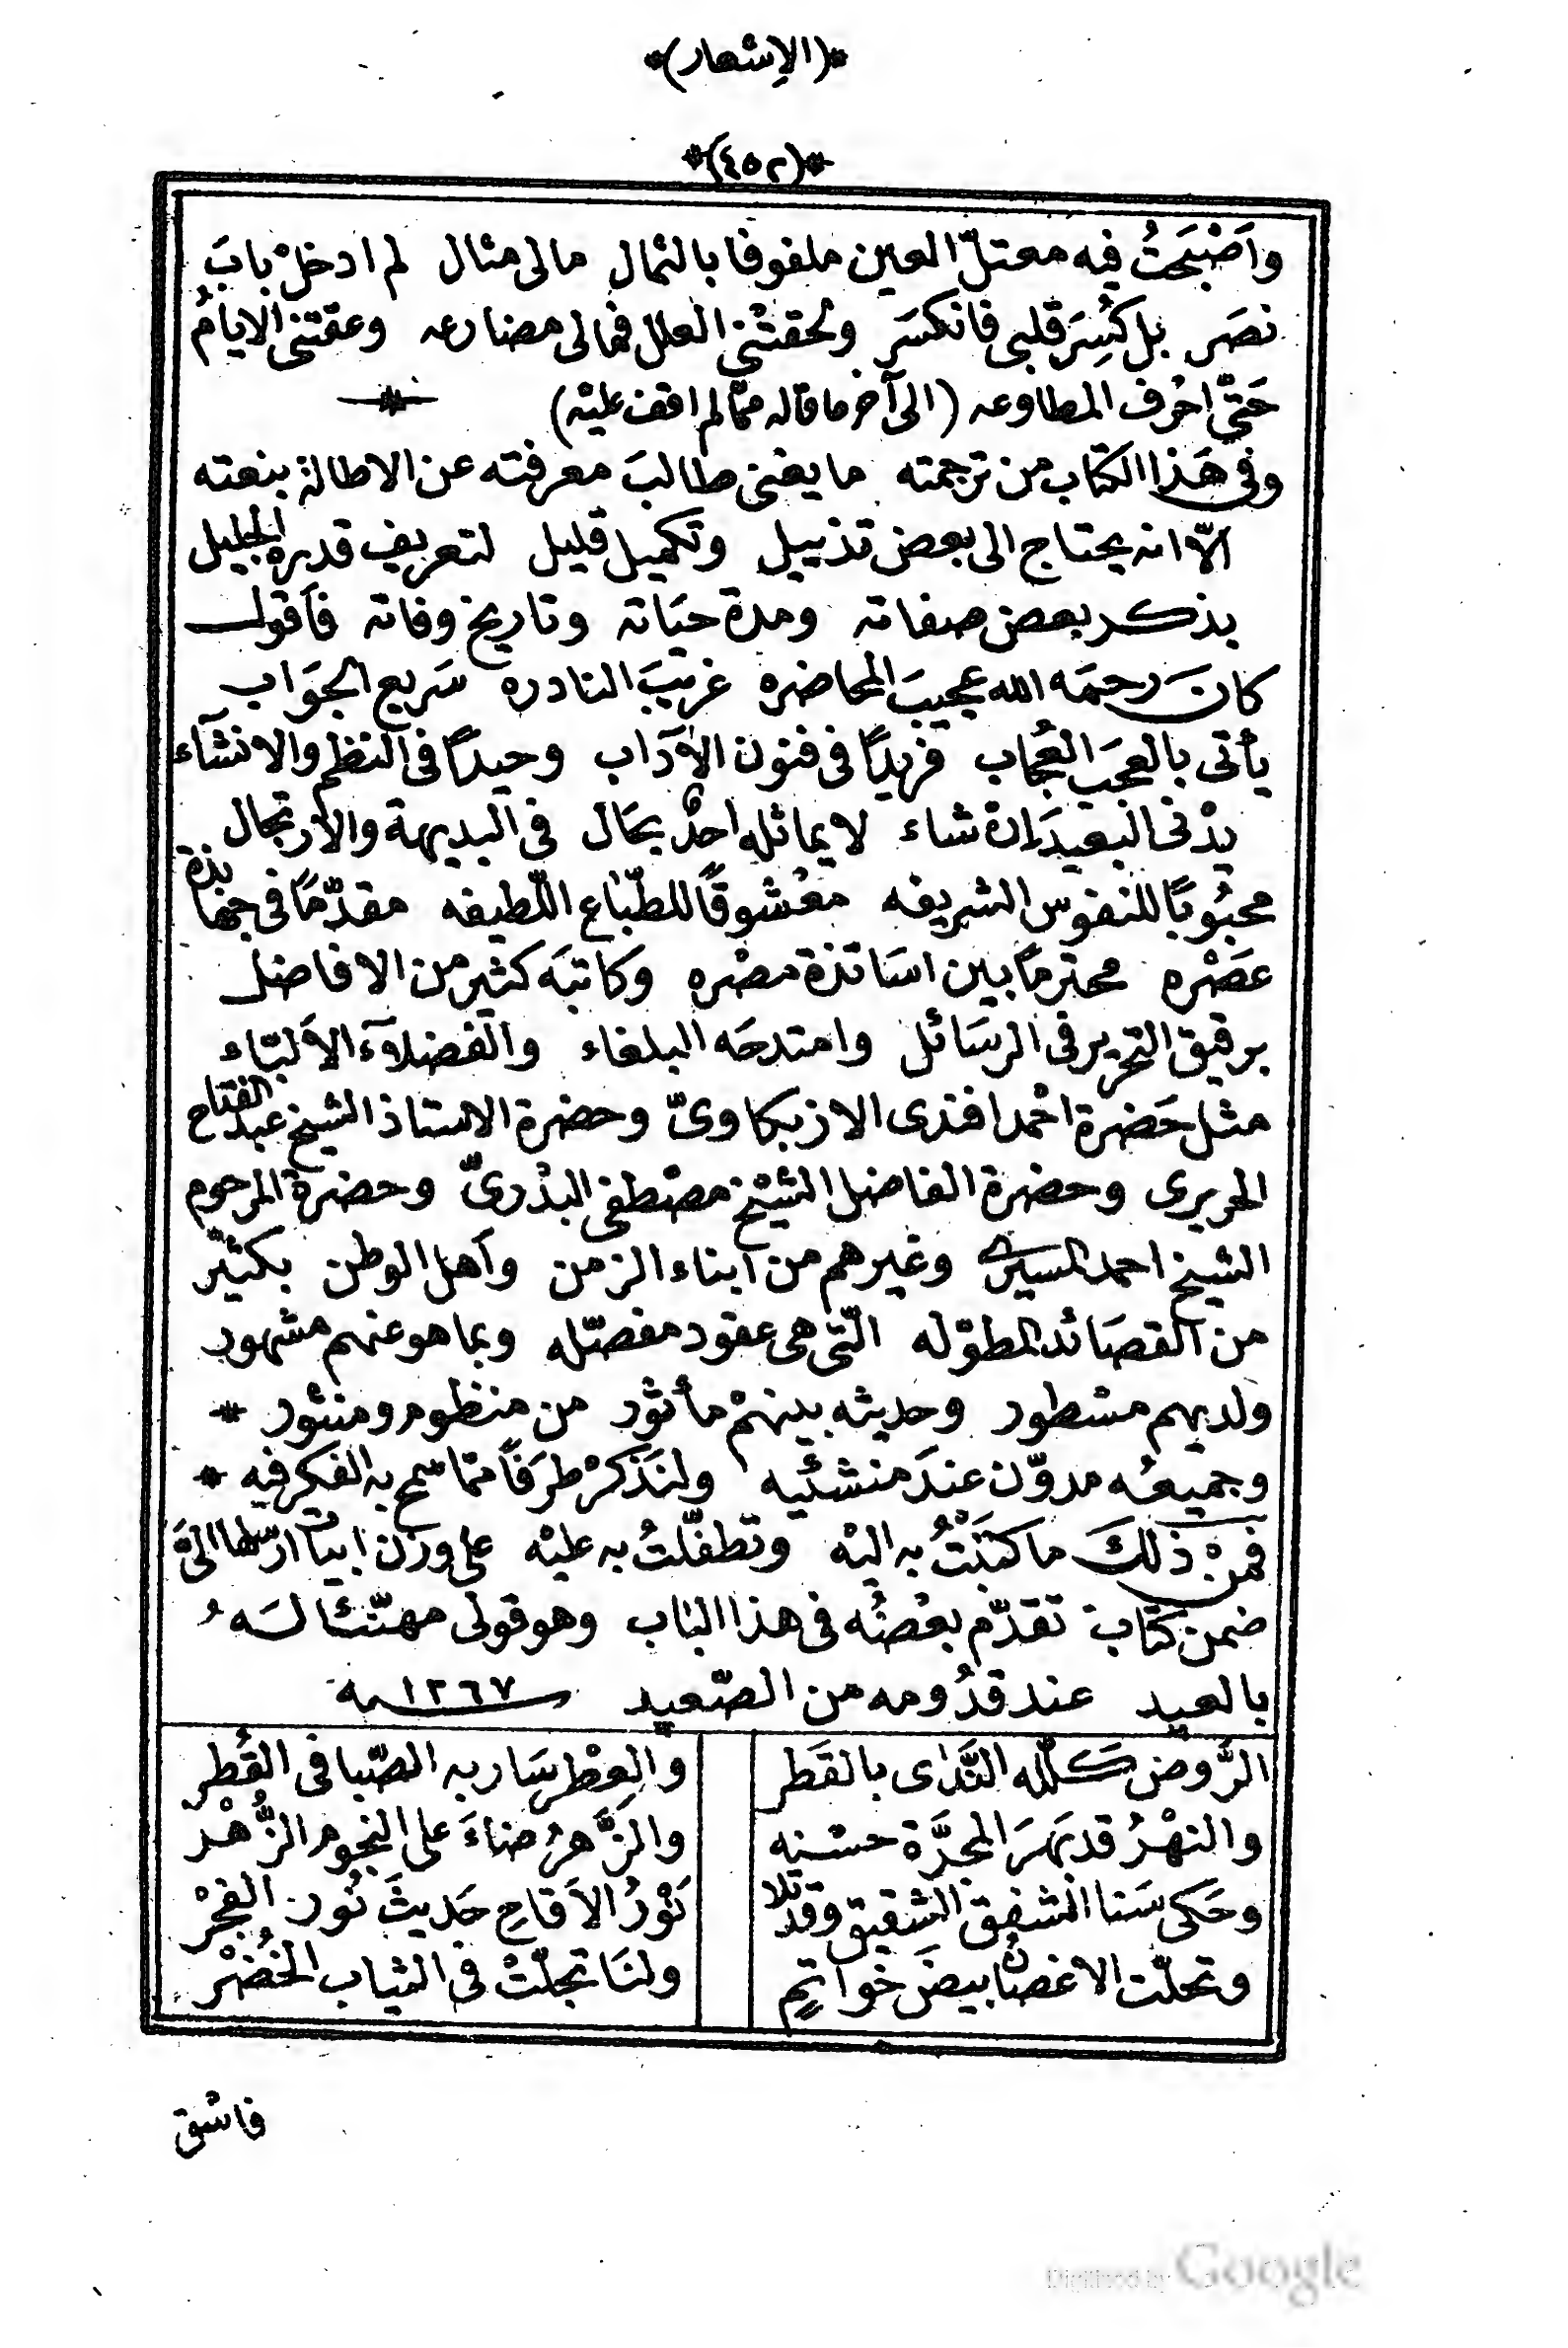 *(الإشعار)*
*(٤٥٢)*
واَصْبَحْتُ فيه معتلّ العين ملفوفا بالثمال مالى مثال لم ادخلْ بابَ
نصَر بل كُسِرَ قلبى فانكسَر ولحقتْنِي العلل فما لى مضارعه وعقتنى الايامُ
حَتىّ احْرف المطاوعه (الى آخر ما قاله ممّا لم اقف عليْه) *
وفى هَذا الكتاب من ترجمته ما يغنى طالبَ معرفته عن الاطالة بنعته
الاّ انه يحتاج الى بعض تذييل وتكميل قليل لتعريف قدره الجليل
بذكر بعض صفاته ومدة حيَاته وتاريخ وفاته فأقول
كانَ رحمَه الله عجيبَ المحاضره غريبَ النادره سَريع الجوَاب
يأتى بالعجَب العُجاب فريدًا فى فنون الآداب وحيدًا فى النظم والانشآء
يدْنى البعيدَ ان شاء لا يماثله احدٌ بحَال فى البديهة والارتجال
محبُوبًا للنفوس الشريفه معْشوقًا للطّباع اللّطيفه مقدّمًا فى جهابذة
عصْره محترمًا بين اسَاتذة مصْره وكاتبَه كثير من الافاضل
برقيق التحرير فى الرسَائل وامتدحَه البلغاء والفضلآء الألبّاء
مثل حَضرة احْمد افندى الازبكاوىّ وحضرة الاستاذ الشيخ عبد الفتاح
الحريرى وحضرة الفاضل الشيْخ مصْطفى البدْرىّ وحضرة المرحوم
الشيخ احمد وغيرهم من ابناء الزمن وأهل الوطن بكثيّر
من القصَائد المطوّله الّتى هى عقود مفصّله وبما هو عنهم مشهور
ولديهم مسْطور وحديثه بينهمْ مأثور من منظوم ومنثور *
وجميعُه مدوّن عندَ منشئيه ولنَذكرْ طرَفًا ممّا سمح به الفكر فيه *
فمنْ ذلكَ ما كتبْتُ به اليْه وتطفّلتُ به عليْه على وزن ابيات ارسلها الىَّ
ضمن كتَاب تقدّم بعْضُه فى هذا البَاب وهو قولى مهنّئا لَه
بالعيد عند قدُومه من الصّعيد سنة ١٢٦٧
الرَّوض كلّله النَّدَى بالقَطر والعِطْر سَار به الصّبا فى القُطر
والنهْرُ قد بهَرَ المجرَّة حسْنه والزَّهرُ ضاءَ على النجوم الزُّهْر
وحَكى سَنا الشفق الشقيق وقد تلا نَوْرُ الأقاح حَديثَ نُور الفجْر
وتحلّت الاغصانُ بيضَ خواتِمٍ ولنَا تجلّتْ فى الثياب الخُضْر
فاشق
Digitized by Google